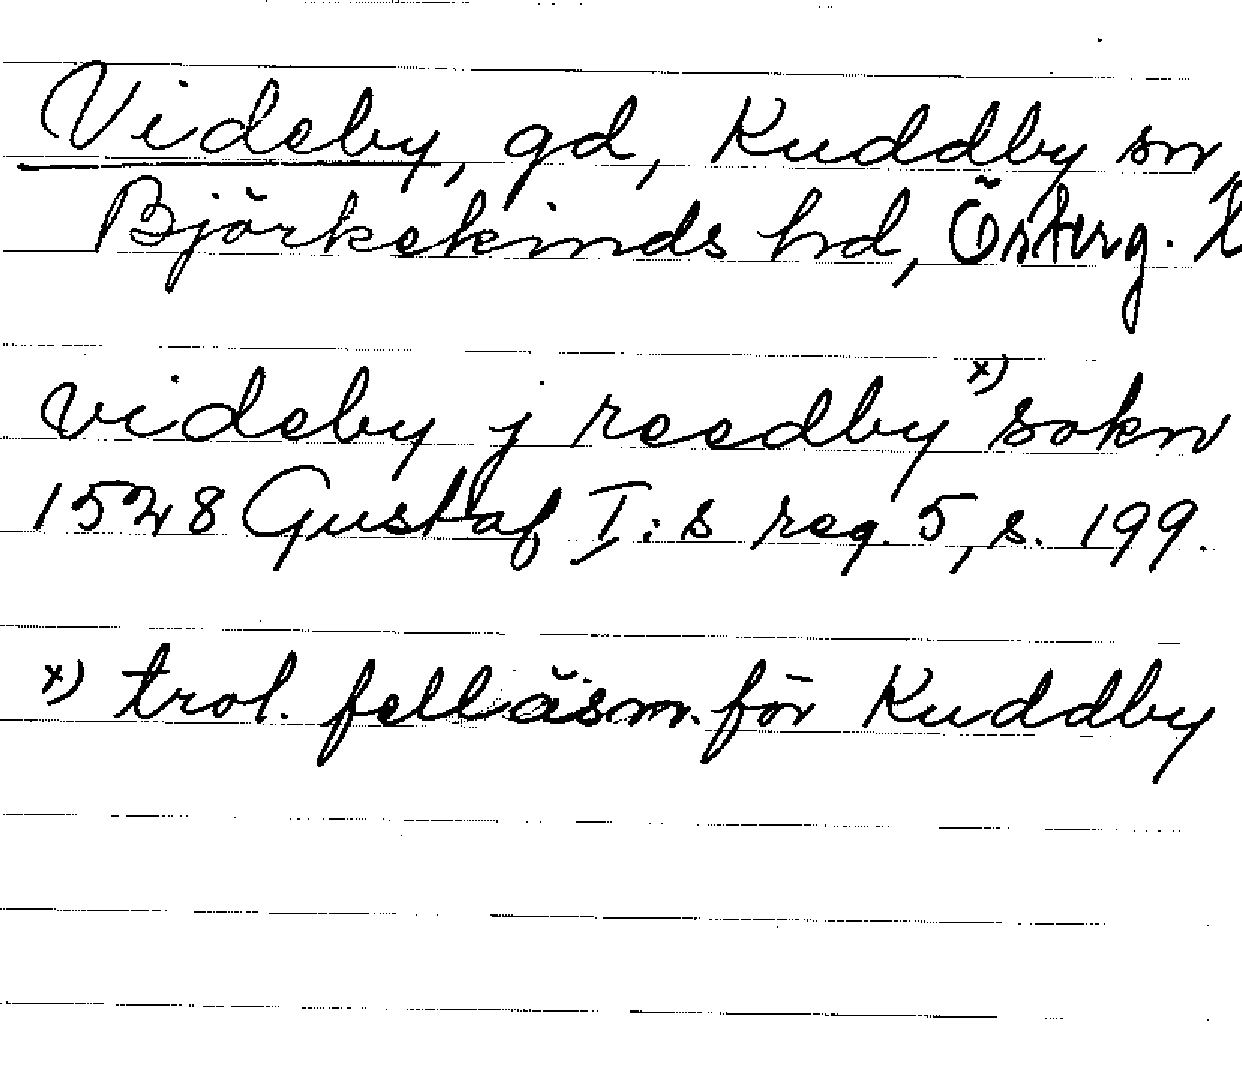 Videby, gd, Kuddby sn
Björkekinds hd, Österg. l
videby j reedby x) sokn
1528 Gustaf I:s reg. 5, s. 199.
x) trol. felläsn. för Kuddby